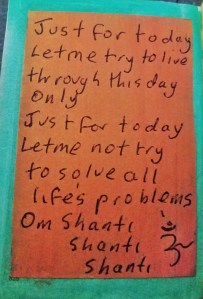 Just for today
Let me try to live
through this day
only
Just for today
Let me not try
to solve all
life's problems
Om Shanti
Shanti
Shanti
ॐ